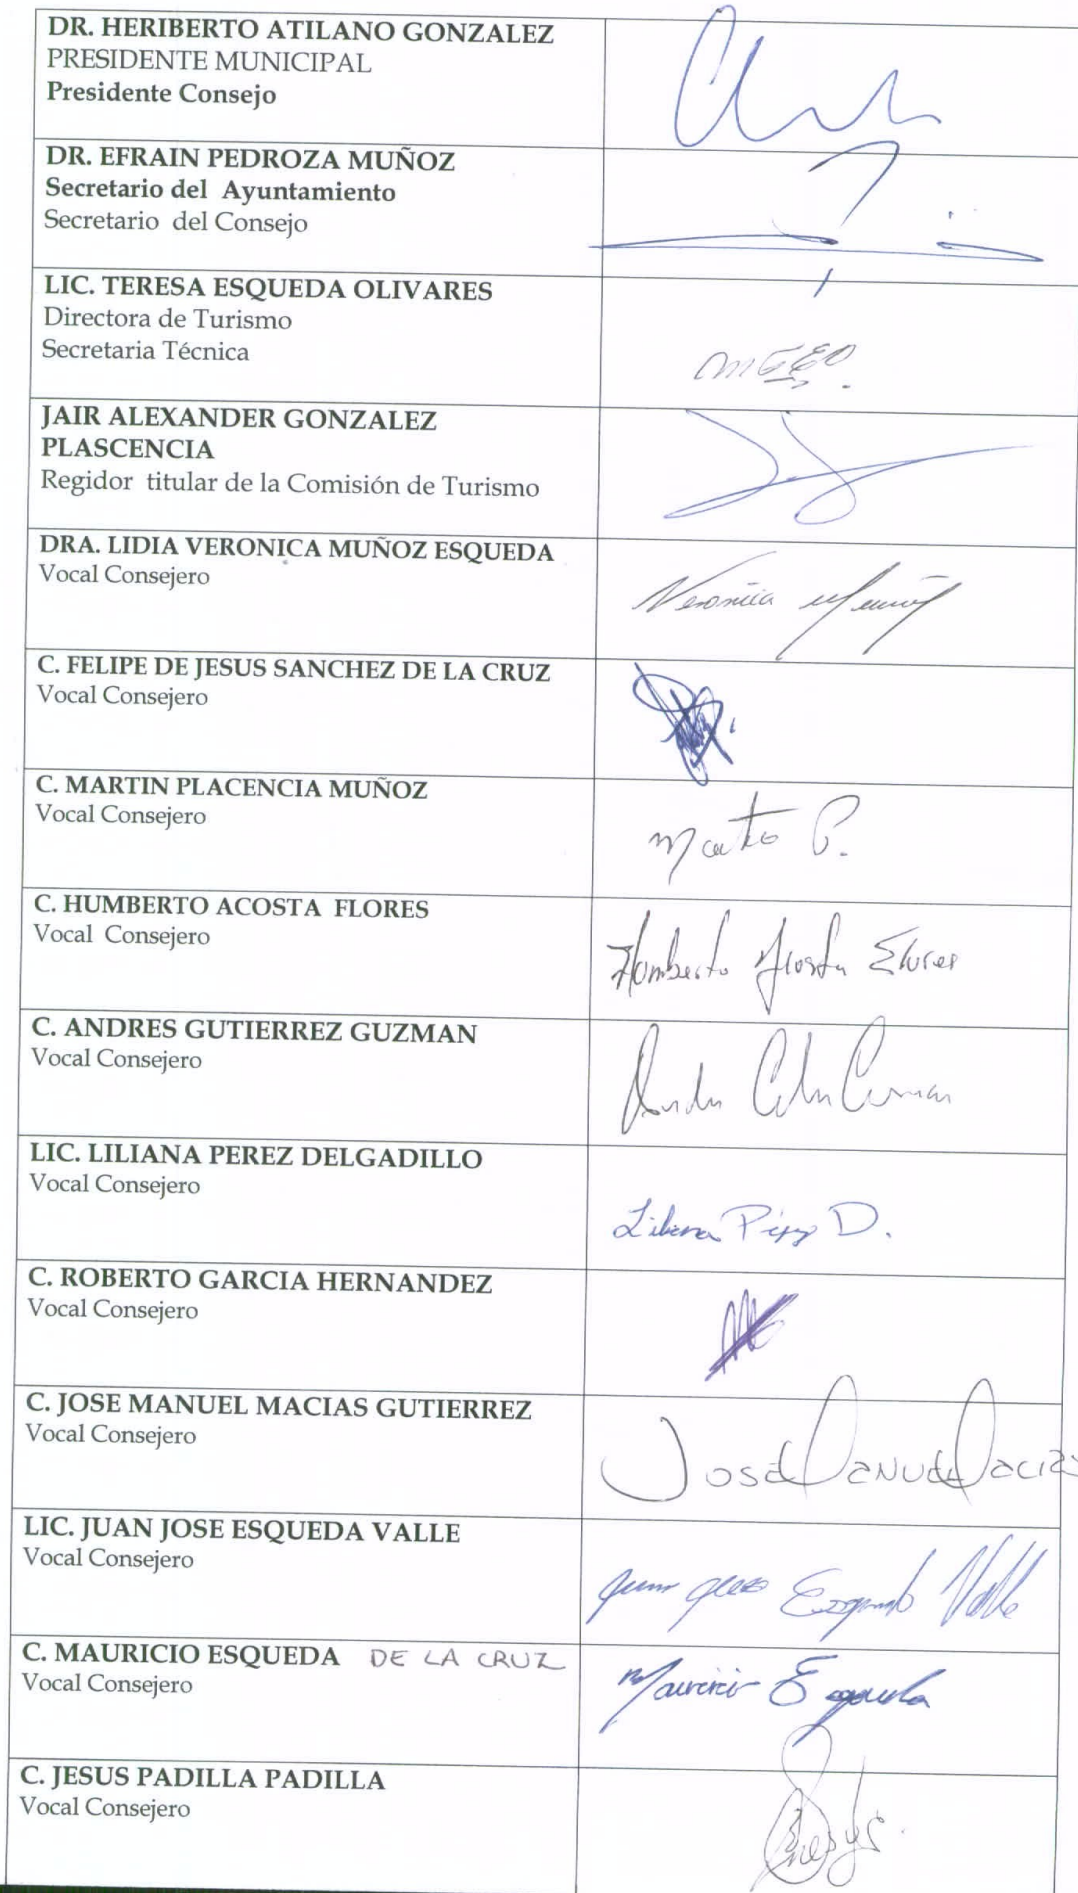 DR. HERIBERTO ATILANO GONZALEZ
PRESIDENTE MUNICIPAL
Presidente Consejo
DR. EFRAIN PEDROZA MUÑOZ
Secretario del Ayuntamiento
Secretario del Consejo
LIC. TERESA ESQUEDA OLIVARES
Directora de Turismo
Secretaria Técnica
JAIR ALEXANDER GONZALEZ
PLASCENCIA
Regidor titular de la Comisión de Turismo
DRA. LIDIA VERONICA MUÑOZ ESQUEDA
Vocal Consejero
Veronica Muñoz
C. FELIPE DE JESUS SANCHEZ DE LA CRUZ
Vocal Consejero
C. MARTIN PLACENCIA MUÑOZ
Vocal Consejero
P.
C. HUMBERTO ACOSTA FLORES
Vocal Consejero
Humberto Acosta Flores
C. ANDRES GUTIERREZ GUZMAN
Vocal Consejero
LIC. LILIANA PEREZ DELGADILLO
Vocal Consejero
Liliana Pérez D.
C. ROBERTO GARCIA HERNANDEZ
Vocal Consejero
C. JOSE MANUEL MACIAS GUTIERREZ
Vocal Consejero
José Manuel Macias
LIC. JUAN JOSE ESQUEDA VALLE
Vocal Consejero
Juan Jose Esqueda Valle
C. MAURICIO ESQUEDA DE LA CRUZ
Vocal Consejero
Mauricio Esqueda
C. JESUS PADILLA PADILLA
Vocal Consejero